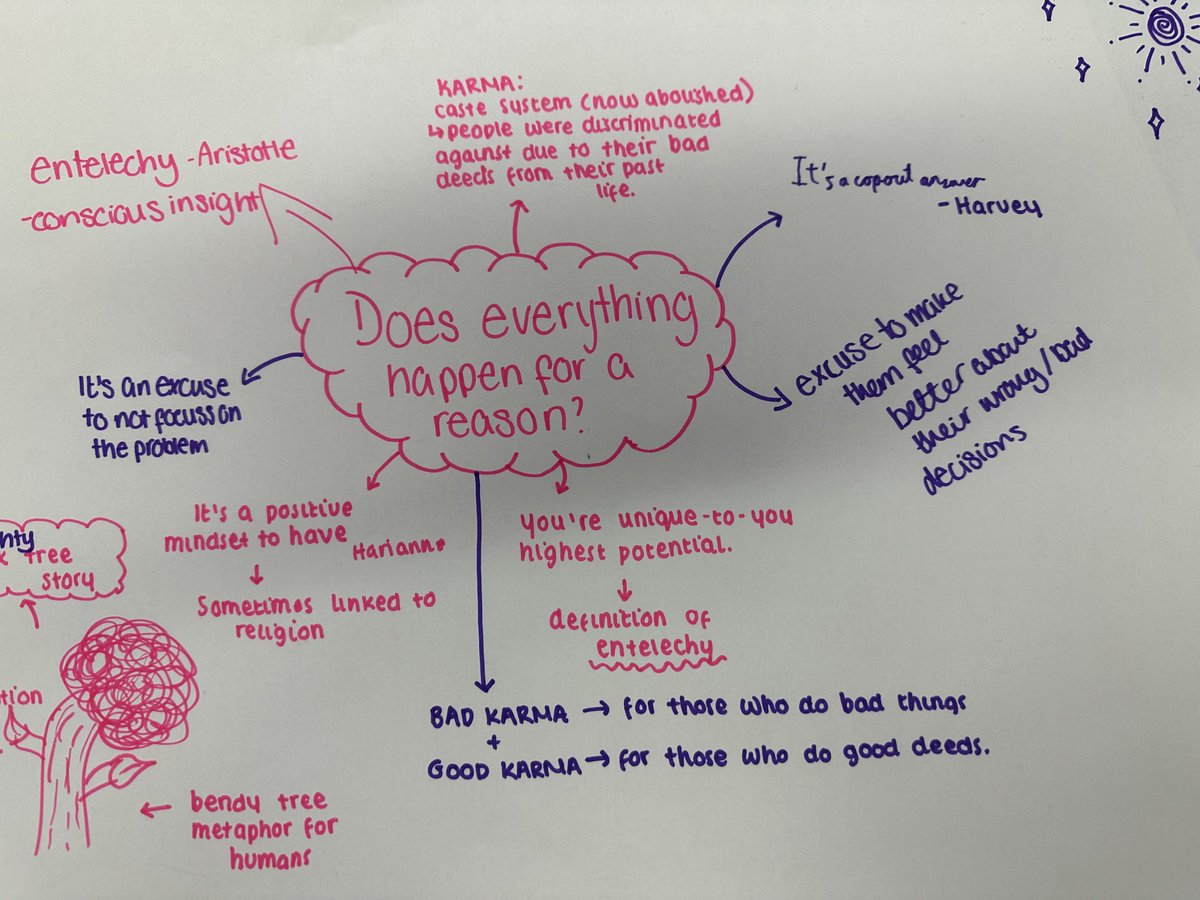 KARMA:
caste system (now abolished)
↳people were discriminated
against due to their bad
deeds from their past
life.
entelechy - Aristotle
-conscious insight
It's a copout answer
- Harvey
Does everything
happen for a
reason?
excuse to make
them feel
better about
their wrong/bad
decisions
It's an excuse
to not focuss on
the problem
It's a positive
mindset to have
Harianne
↓
Sometimes linked to
religion
You're unique-to-you
highest potential.
↓
definition of
entelechy
tree
story
BAD KARMA → for those who do bad things
+
GOOD KARMA → for those who do good deeds.
← bendy tree
metaphor for
humans